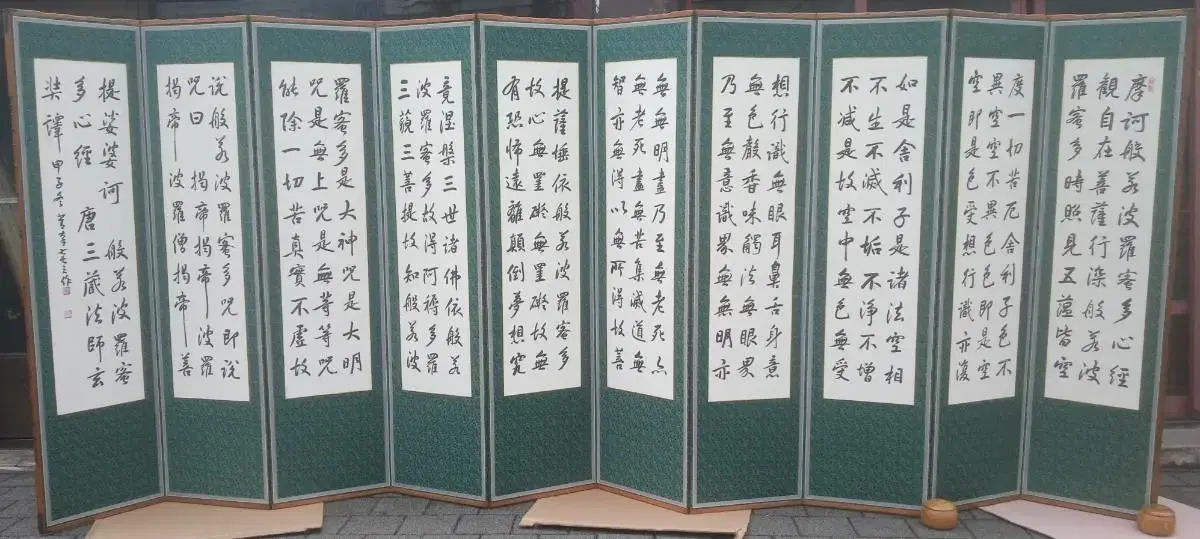 摩訶般若波羅蜜多心經
觀自在菩薩行深般若波
羅蜜多時照見五蘊皆空
度一切苦厄舍利子色不
異空空不異色色即是空
空即是色受想行識亦復
如是舍利子是諸法空相
不生不滅不垢不淨不增
不減是故空中無色無受
想行識無眼耳鼻舌身意
無色聲香味觸法無眼界
乃至無意識界無無明亦
無無明盡乃至無老死亦
無老死盡無苦集滅道無
智亦無得以無所得故菩
提薩埵依般若波羅蜜多
故心無罣礙無罣礙故無
有恐怖遠離顛倒夢想究
竟涅槃三世諸佛依般若
波羅蜜多故得阿耨多羅
三藐三菩提故知般若波
羅蜜多是大神咒是大明
咒是無上咒是無等等咒
能除一切苦真實不虛故
說般若波羅蜜多咒即說
咒曰 揭帝揭帝 波羅
揭帝 波羅僧揭帝 菩
提娑婆訶 般若波羅蜜
多心經 唐三藏法師玄
奘譯 甲子冬